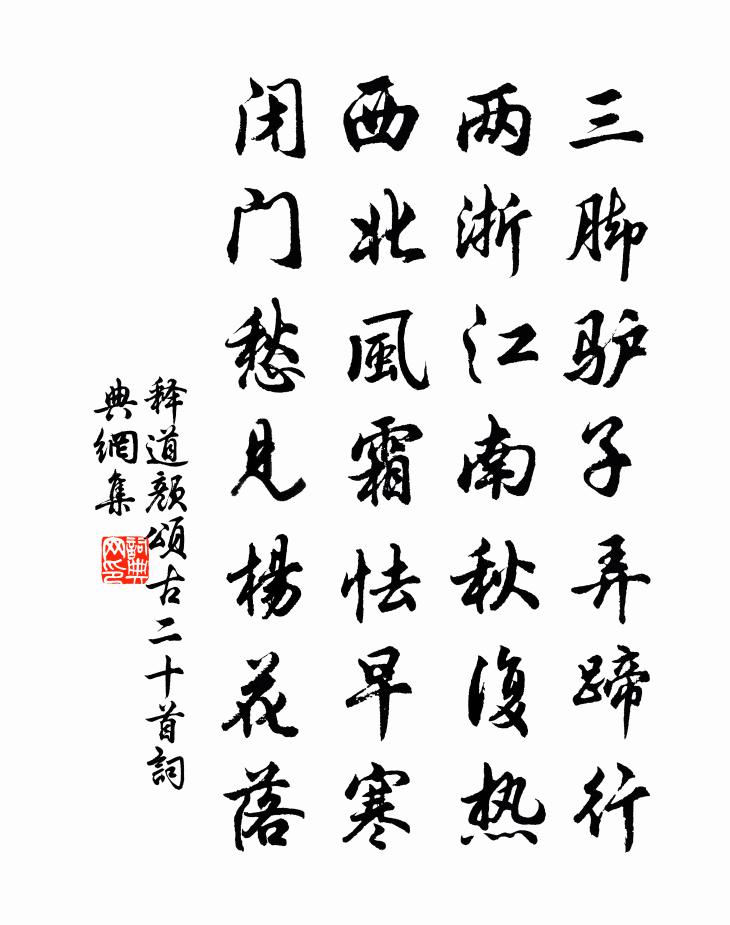 三脚驴子弄蹄行
两浙江南秋復热
西北風霜怯早寒
闭门愁见楊花落
释道颜頌古二十首詞
典網集
詞典
网印